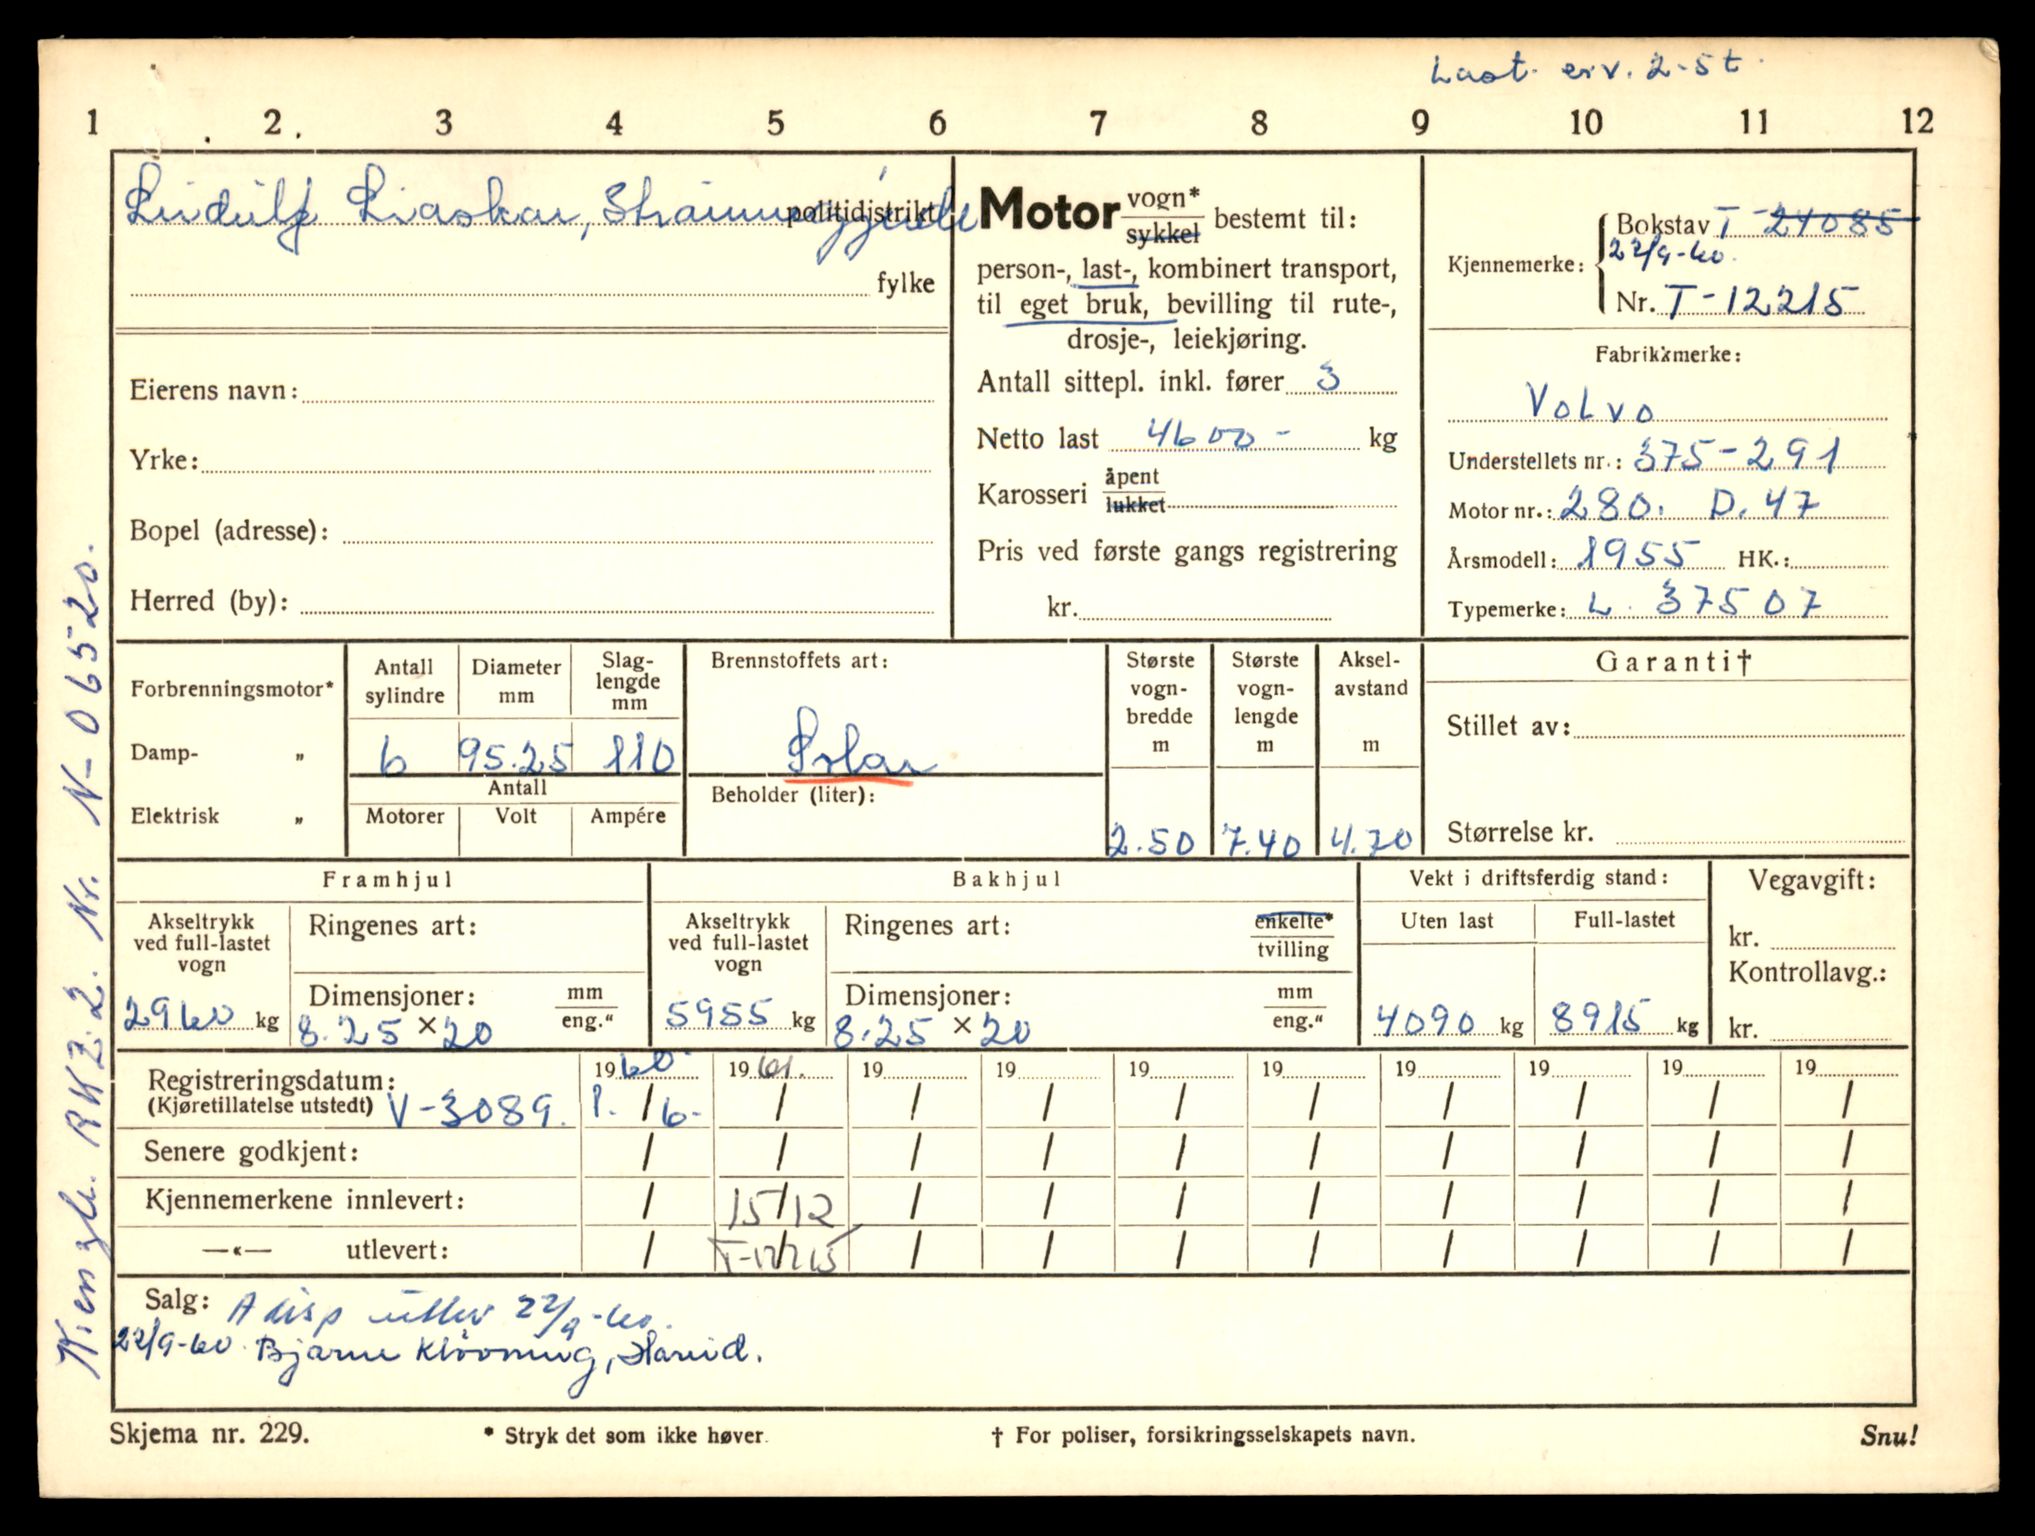 Last erv. 2-5 t.
1 2 3 4 5 6 7 8 9 10 11 12
Liaskar, politidistrikt
fylke
Eierens navn:
Yrke:
Bopel (adresse):
Herred (by):
Motor vogn* sykkel bestemt til:
person-, last-, kombinert transport,
til eget bruk, bevilling til rute-,
drosje-, leiekjøring.
Antall sittepl. inkl. fører 3
Netto last 4600- kg
Karosseri åpent lukket
Pris ved første gangs registrering
kr.
Kjennemerke: Bokstav T-24085
22/9-60.
Nr. T-12215
Fabrikkmerke:
Volvo
Understellets nr.: 375-291
Motor nr.: 280. D. 47
Årsmodell: 1955 HK.:
Typemerke: L. 37507
Forbrenningsmotor*
Damp- "
Elektrisk "
Antall sylindre
Diameter mm
Slag-lengde mm
6 95.25 110
Antall
Motorer Volt Ampére
Brennstoffets art:
Solar
Beholder (liter):
Største vogn-bredde m
2.50
Største vogn-lengde m
7.40
Aksel-avstand m
4.70
Garanti†
Stillet av:
Størrelse kr.
Framhjul
Akseltrykk ved full-lastet vogn
2960 kg
Ringenes art:
Dimensjoner: mm eng."
8.25 × 20
Bakhjul
Akseltrykk ved full-lastet vogn
5955 kg
Ringenes art: enkelte* tvilling
Dimensjoner: mm eng."
8.25 × 20
Vekt i driftsferdig stand:
Uten last Full-lastet
4090 kg 8915 kg
Vegavgift:
kr.
Kontrollavg.:
kr.
Registreringsdatum: 1960 1961. 19 19 19 19 19 19 19 19
(Kjøretillatelse utstedt) V-3089. 1. / 6- / / / / / / / / /
Senere godkjent: / / / / / / / / / /
Kjennemerkene innlevert: / 15/12 / / / / / / / /
—«— utlevert: / T-12215 / / / / / / / /
Salg: A disp utlev 22/9-60.
22/9-60. Bjarne Kløvning, Hareid.
Skjema nr. 229. * Stryk det som ikke høver. † For poliser, forsikringsselskapets navn. Snu!
Kienzle. RKZ.2. Nr. N-06520.